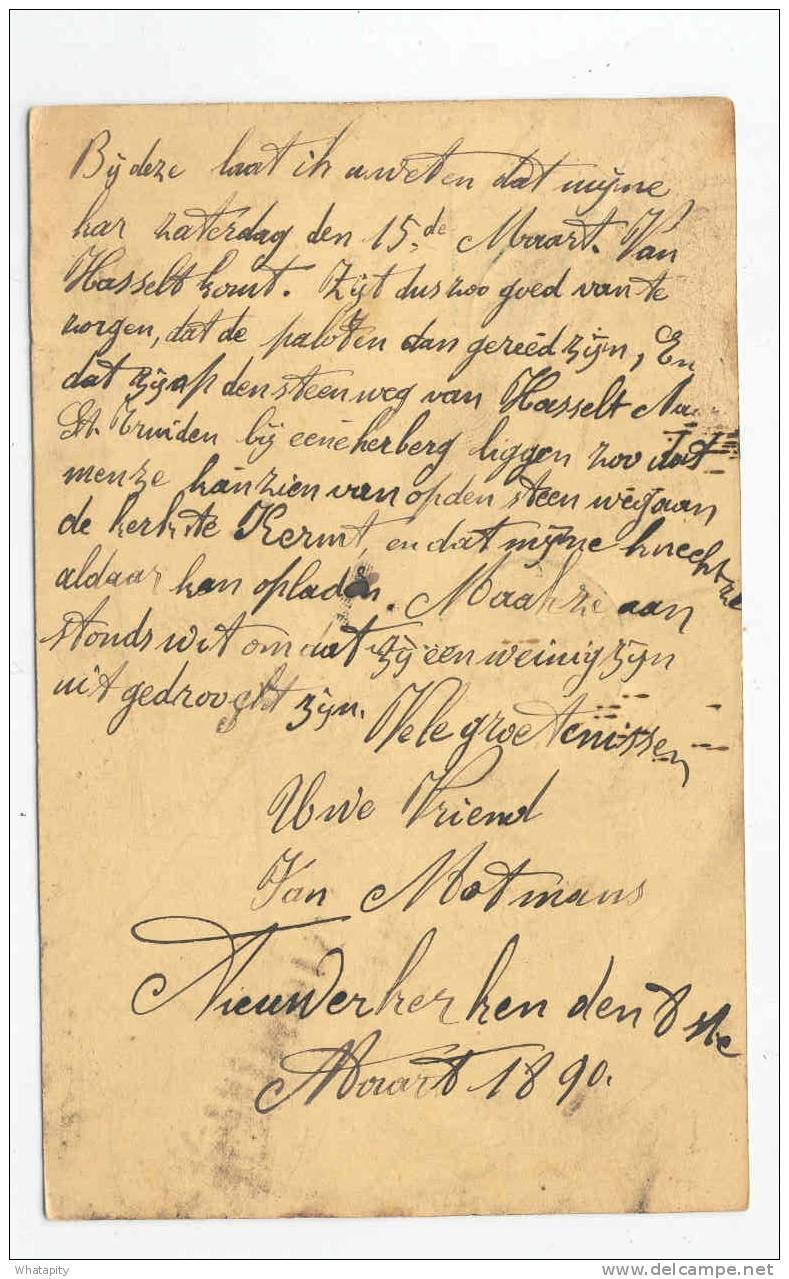 Bij deze laat ik u weten dat mijne
kar zaterdag den 15de Maart. Van
Hasselt komt. Zijt dus zoo goed van te
zorgen, dat de paloten dan gereed zijn, En
dat zij op den steenweg van Hasselt Na
St. Truiden bij eene herberg liggen zoo dat
men ze kan zien van op den steenweg aan
de kerk te Kermt, en dat mijne knecht ze
aldaar kan opladen. Maak ze aan
stonds wit omdat zij een weinig zijn
uit gedrooght zijn. Vele groetenissen
Uwe Vriend
Jan Motmans
Nieuwerkerken den 8ste
Maart 1890.
Whatapity
www.delcampe.net